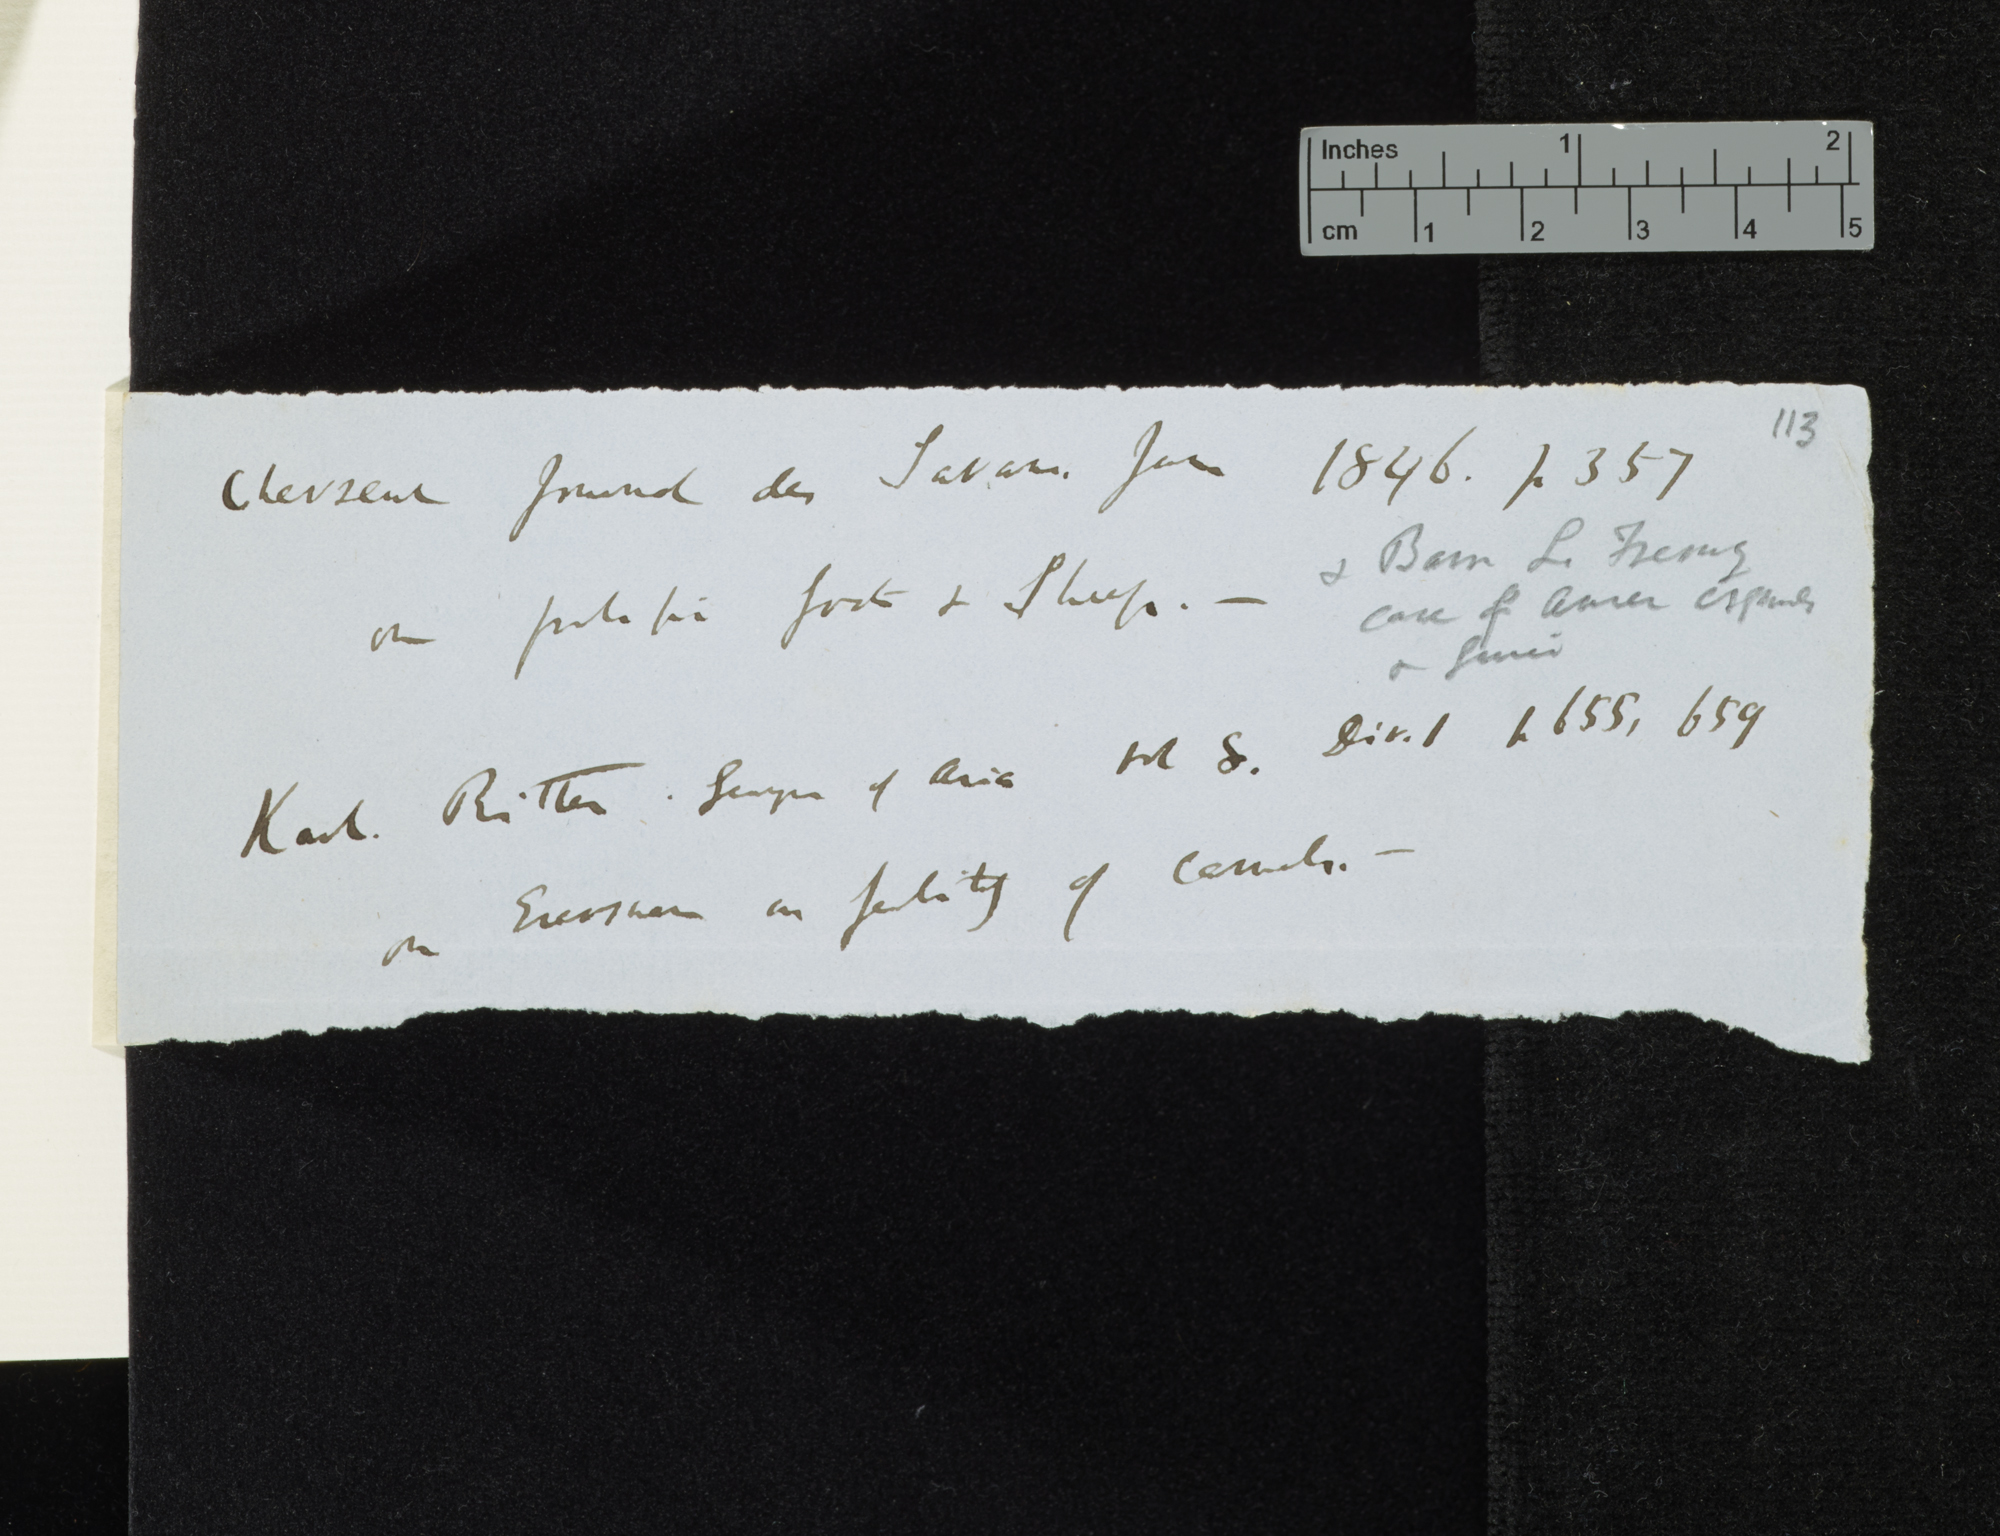 113
Chevreul Journal des Savans. Jun 1846. p 357
on prolific Goats & Sheep. —
& Baron L.
case of Anser Cygnoides
Karl. Ritter. Geogra of Asia vol 8. Div. 1 p 655, 659
on Eversman on fertility of Camels. —
Inches 1 2
cm 1 2 3 4 5